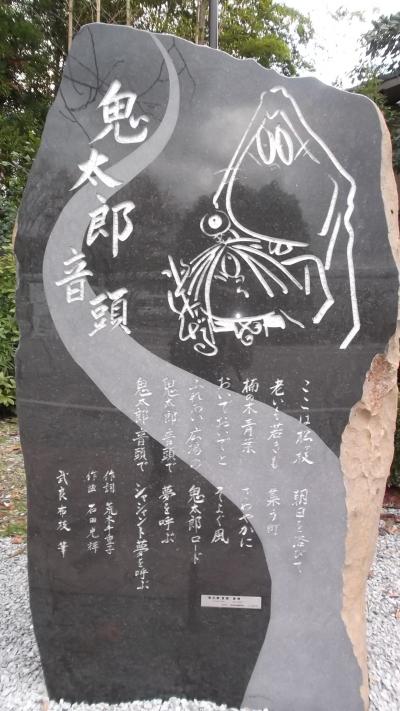 鬼太郎音頭
ここは松ヶ枝 朝日を浴びて
老いも若きも 集う町
楠の木青葉 さわやかに
おいでおいでと そよぐ風
ふれあい広場の 鬼太郎ロード
鬼太郎音頭で 夢を呼ぶ
鬼太郎音頭で ジャジャント夢を呼ぶ
作詞 荒木千重子
作法 石田光輝
武良布枝 筆